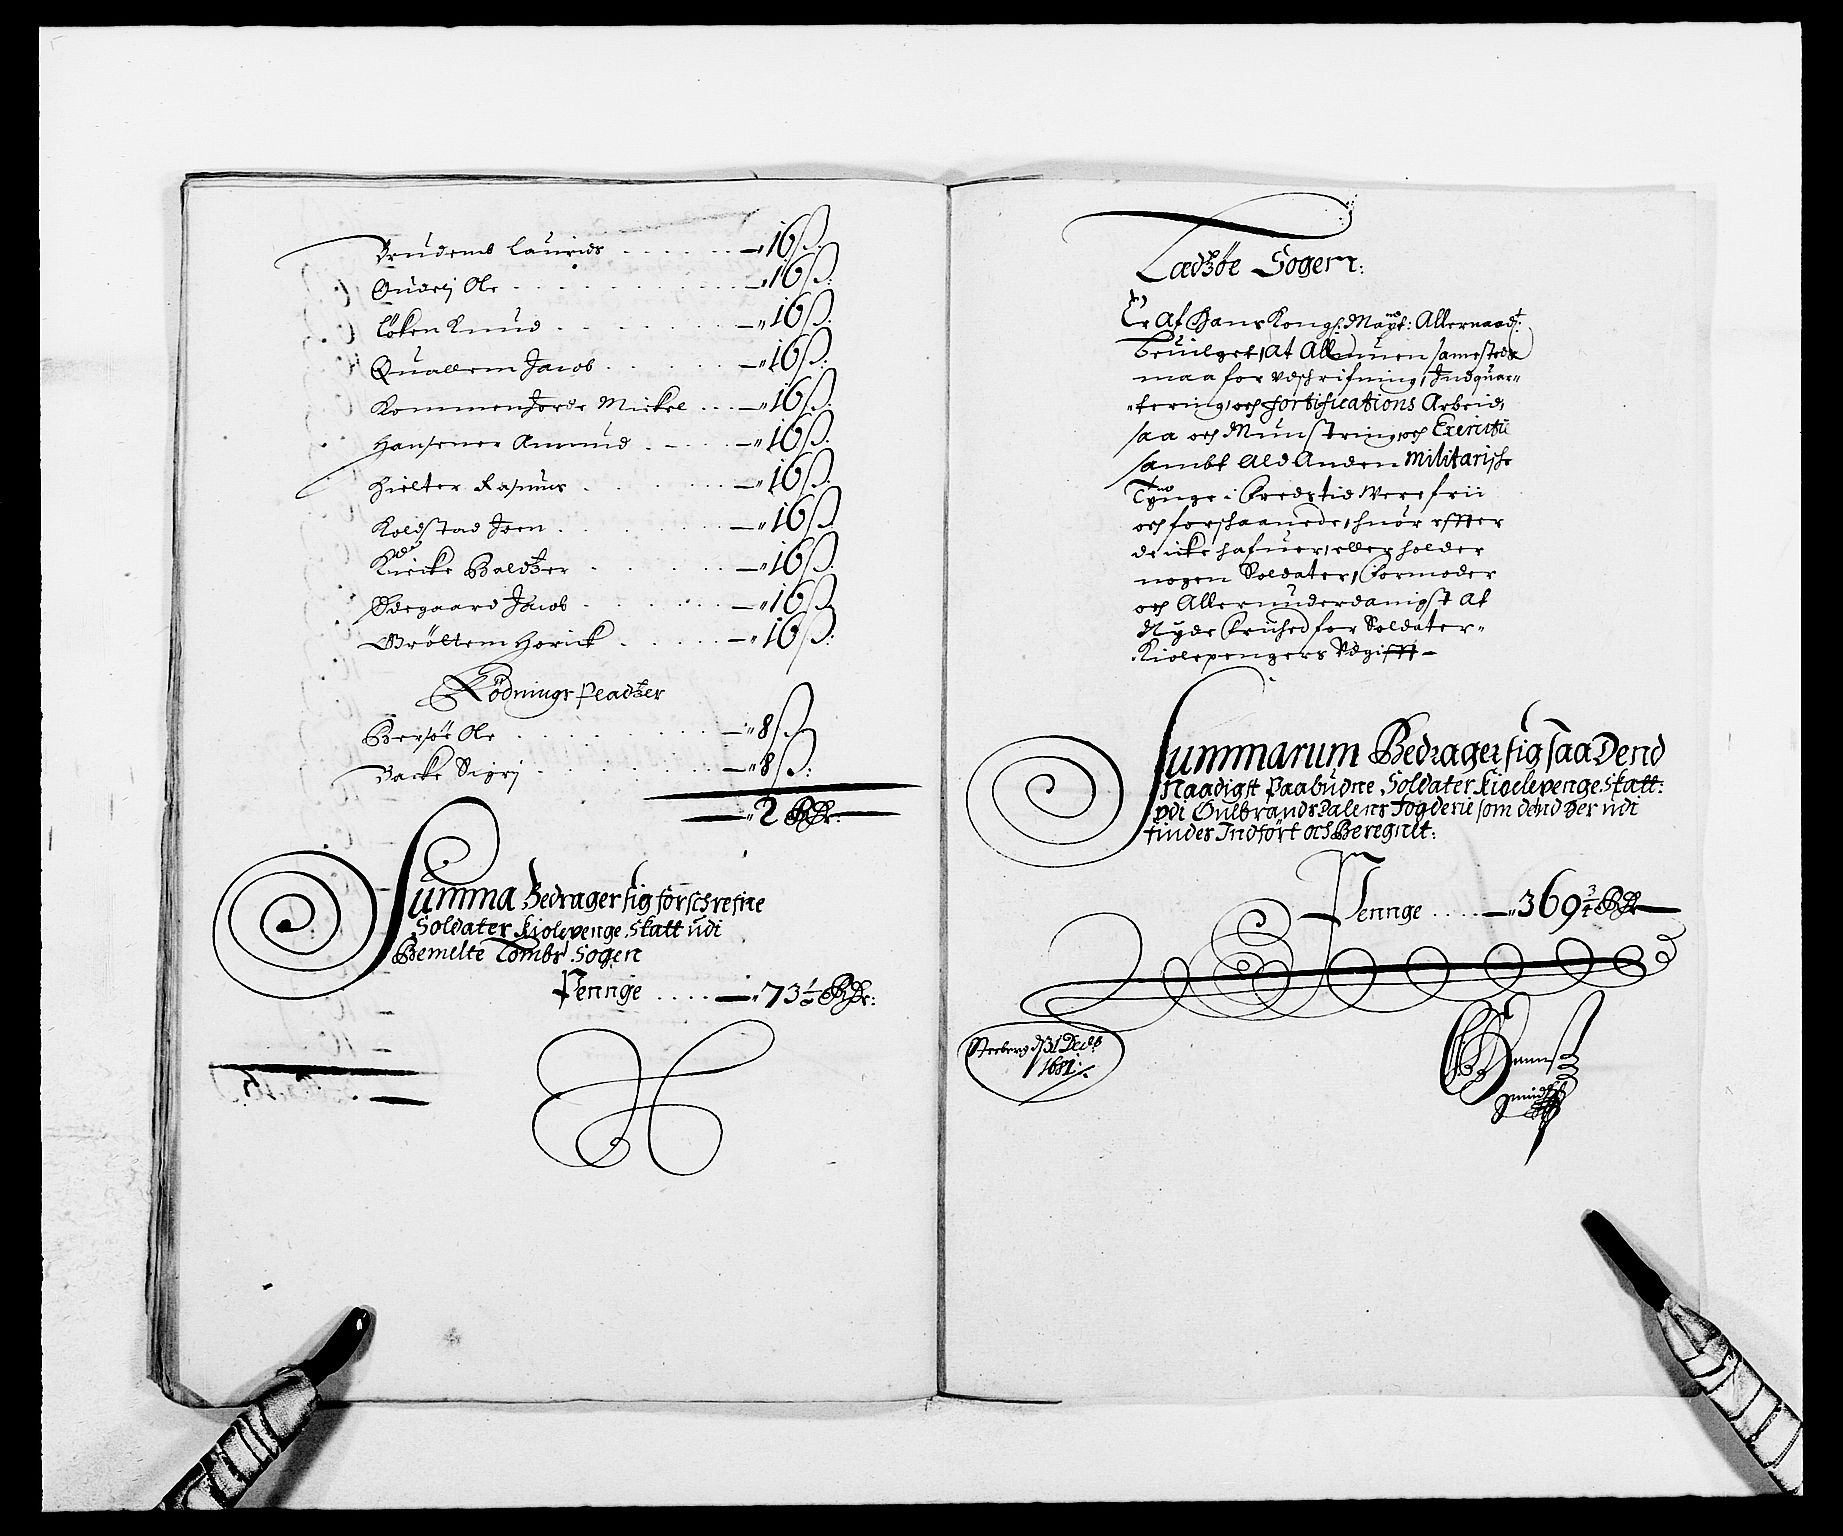 Brudems Laurids . . . . . . — 16 ß:
Oudej Ole . . . . . . . . — 16 ß:
Löken Knud . . . . . . — 16 ß:
Quallem Jacob . . . . . — 16 ß:
Kommensorde Mickel . . . — 16 ß:
Amund . . . — 16 ß:
Hielter Rasmus . . . . . — 16 ß:
Kolstad Joen . . . . . — 16 ß:
Kircke Baldtzer . . . . . — 16 ß:
Ødegaard Jacob . . . . — 16 ß:
Gröltem Horick . . . . — 16 ß:
Rödnings Pladtzer
Bersöe Ole . . . . . . . — 8 ß:
Backe Sigrj . . . . . . — 8 ß:
— 2 Rdr:
Summa Bedrager sig forschrefne
Soldater Kiolepenge Skatt udi
Bemelte Tombs Sogen
Pennge . . . . — 73 1/2 Rdr:
Ladtzöe Sogen:
Er af Hans Kongl: Mayt: Allernaadt:
beuilget, at Allmuen samesteds
maa for Vdschrifning, Indquar-
-tering, och fortifications Arbeid,
saa och Mynstring, och Exercitii
sambt ald Anden Militarische
Tynge i Fredstid Were frii
och forschaanede, huor effter
de icke hafuer, eller holder
nogen Soldater, Formoder
och Allerunderdanigst at
Nyde Friihed for Soldater-
Kiolepengers Vdgifft —
Summarum Bedrager sig saa Dend
Naadigst Paabudne Soldater Kiolepenge Skatt:
udi Gulbrandsdalens fogderie som dend her udi
findes Indfört och Beregnit:
Pennge . . . . . — 369 3/4 Rdr
Steeberg d: 31 Decb:
1681: